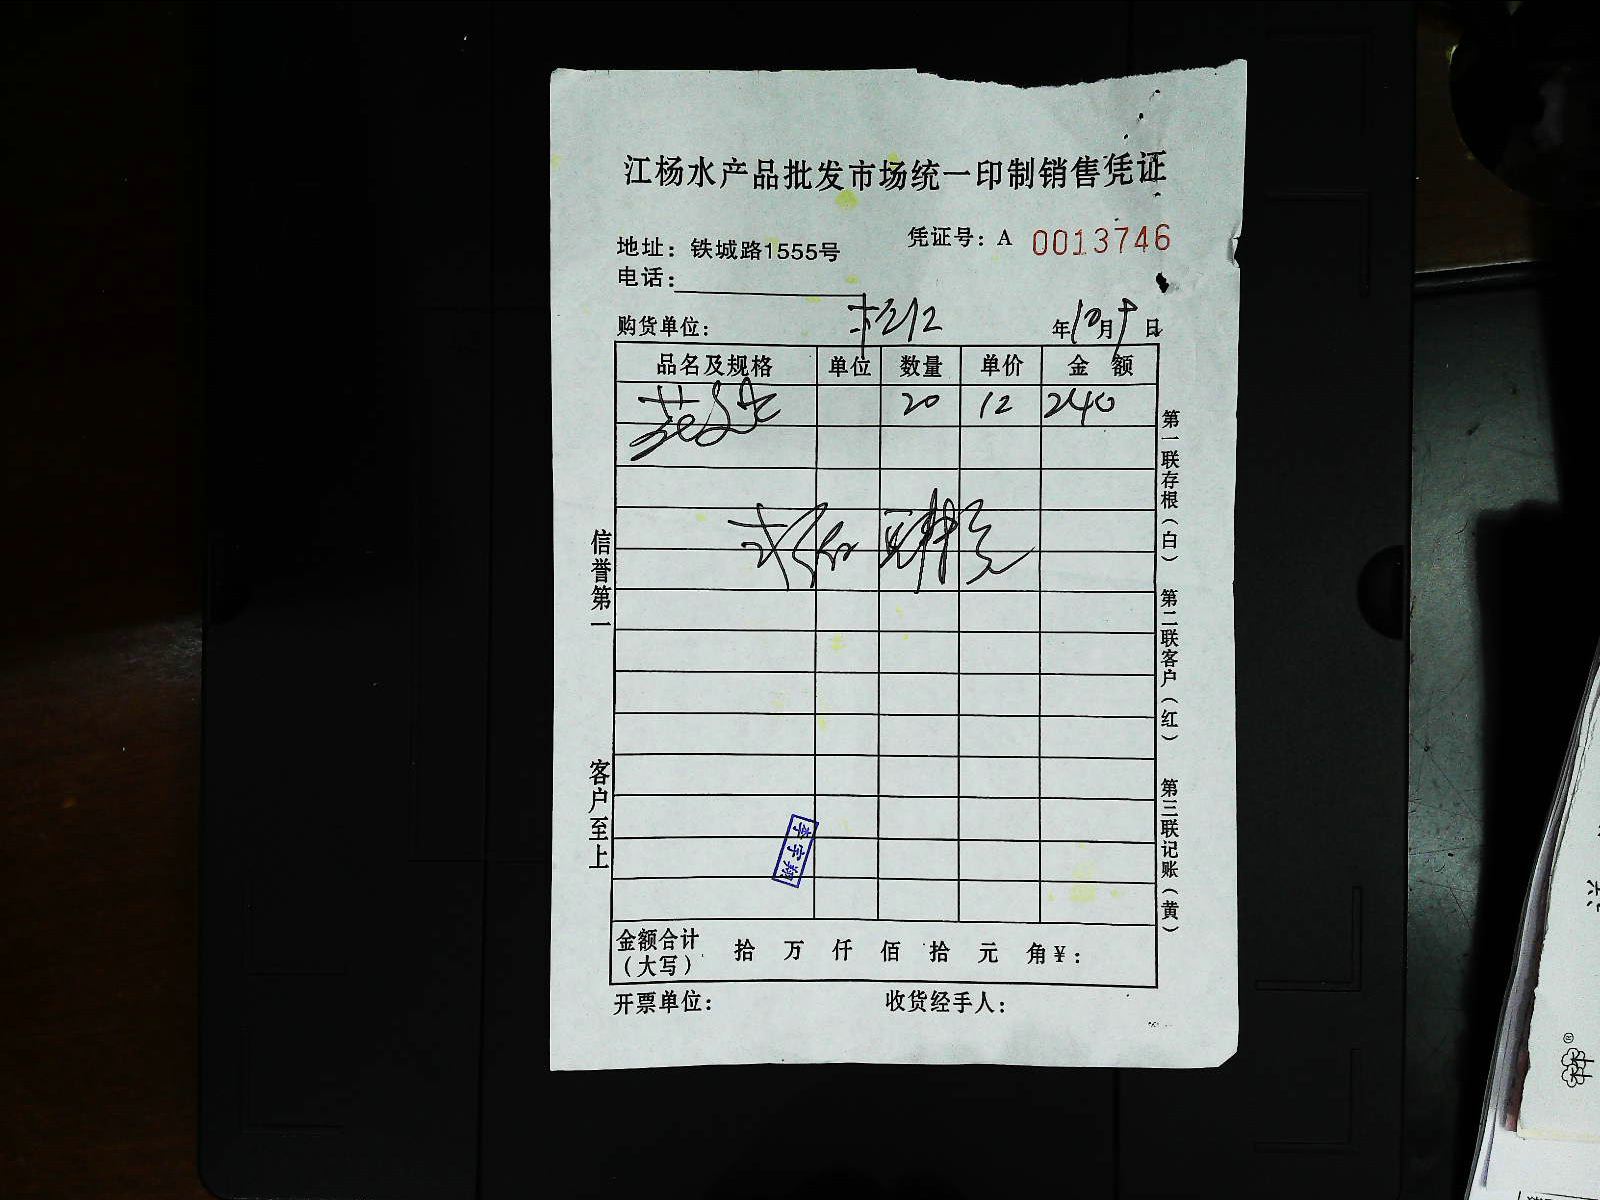 江杨水产品批发市场统一印制销售凭证
凭证号：A 0013746
地址：铁城路1555号
电话：
购货单位： 年10月9日
品名及规格 单位 数量 单价 金 额
20 12 240
信誉第一
客户至上
第一联存根（白）
第二联客户（红）
第三联记账（黄）
李宇翔
金额合计（大写） 拾 万 仟 佰 拾 元 角¥：
开票单位： 收货经手人：